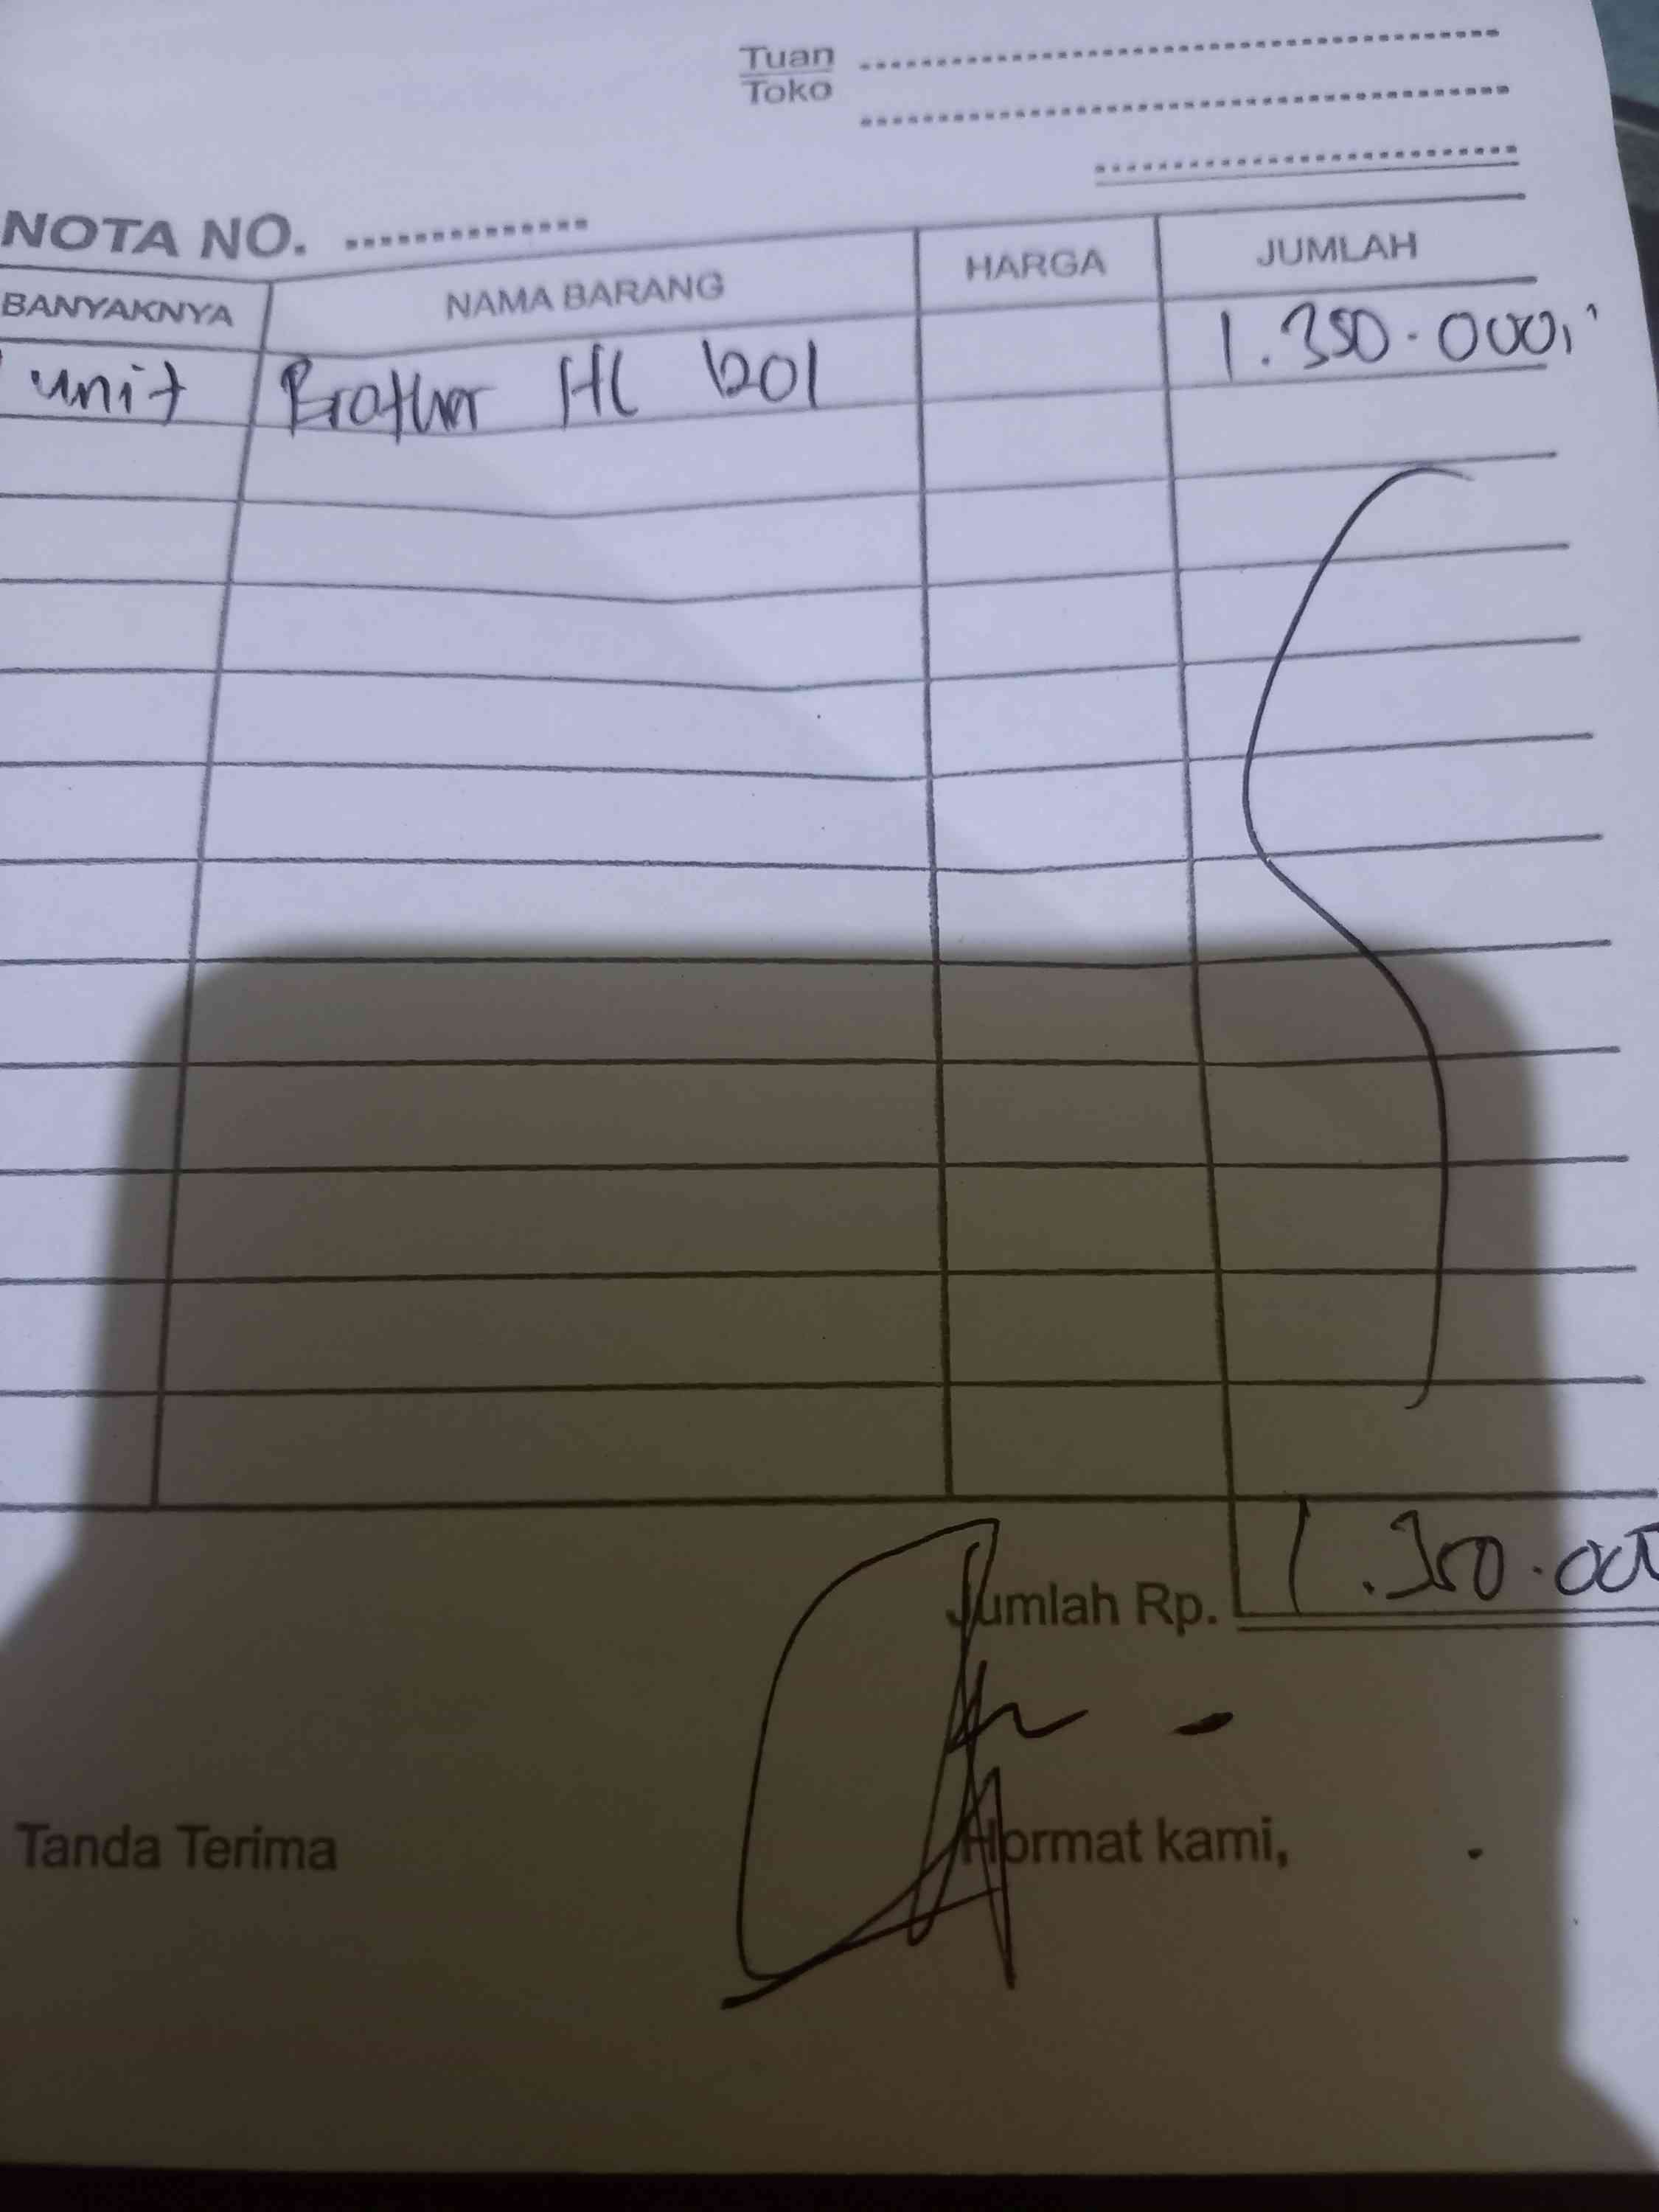 Tuan
Toko
NOTA NO.
BANYAKNYA NAMA BARANG HARGA JUMLAH
unit Brother HL 1201 1.350.000,
Jumlah Rp. 1.350.000
Tanda Terima Hormat kami,